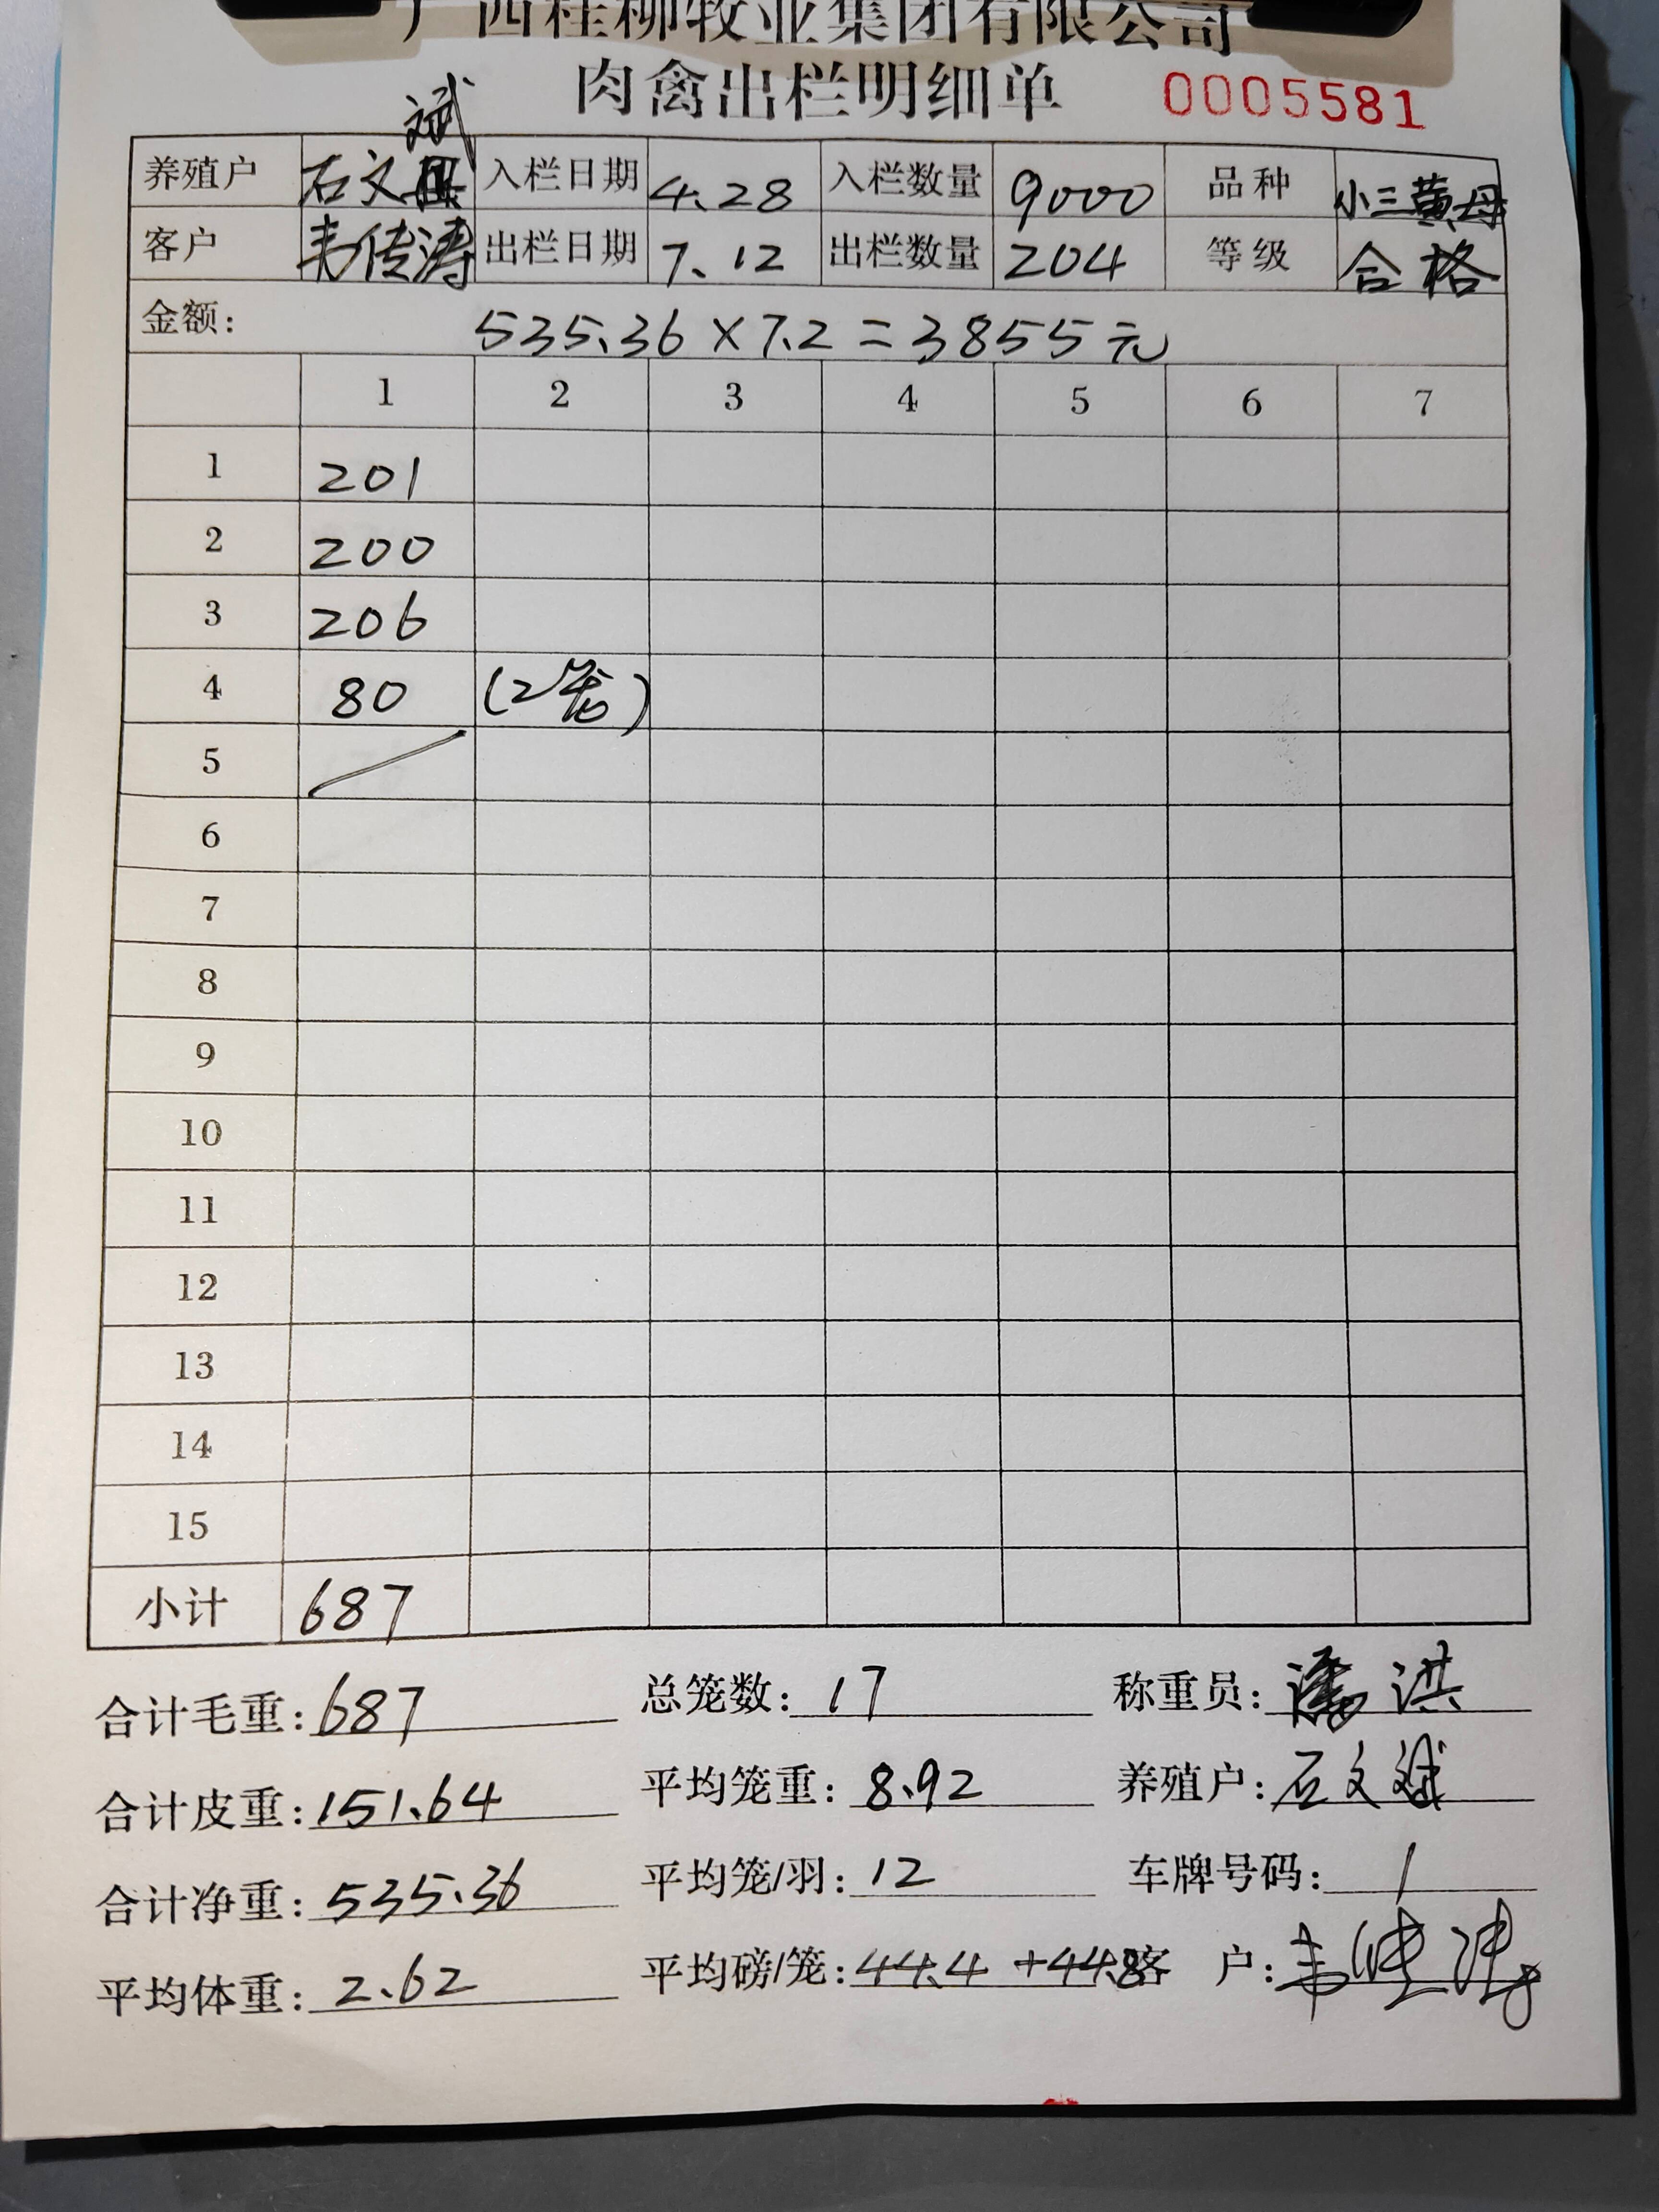 广西桂柳牧业集团有限公司
肉禽出栏明细单 0005581
斌
养殖户 石文 入栏日期 4.28 入栏数量 9000 品种 小三黄母
客户 韦传涛 出栏日期 7.12 出栏数量 204 等级 合格
金额: 535.36×7.2=3855元
1 2 3 4 5 6 7
1 201
2 200
3 206
4 80 (2笼)
5
6
7
8
9
10
11
12
13
14
15
小计 687
合计毛重: 687 总笼数: 17 称重员: 潘洪
合计皮重: 151.64 平均笼重: 8.92 养殖户: 石文斌
合计净重: 535.36 平均笼/羽: 12 车牌号码: /
平均体重: 2.62 平均磅/笼: 44.4+44.8 客户: 韦传涛